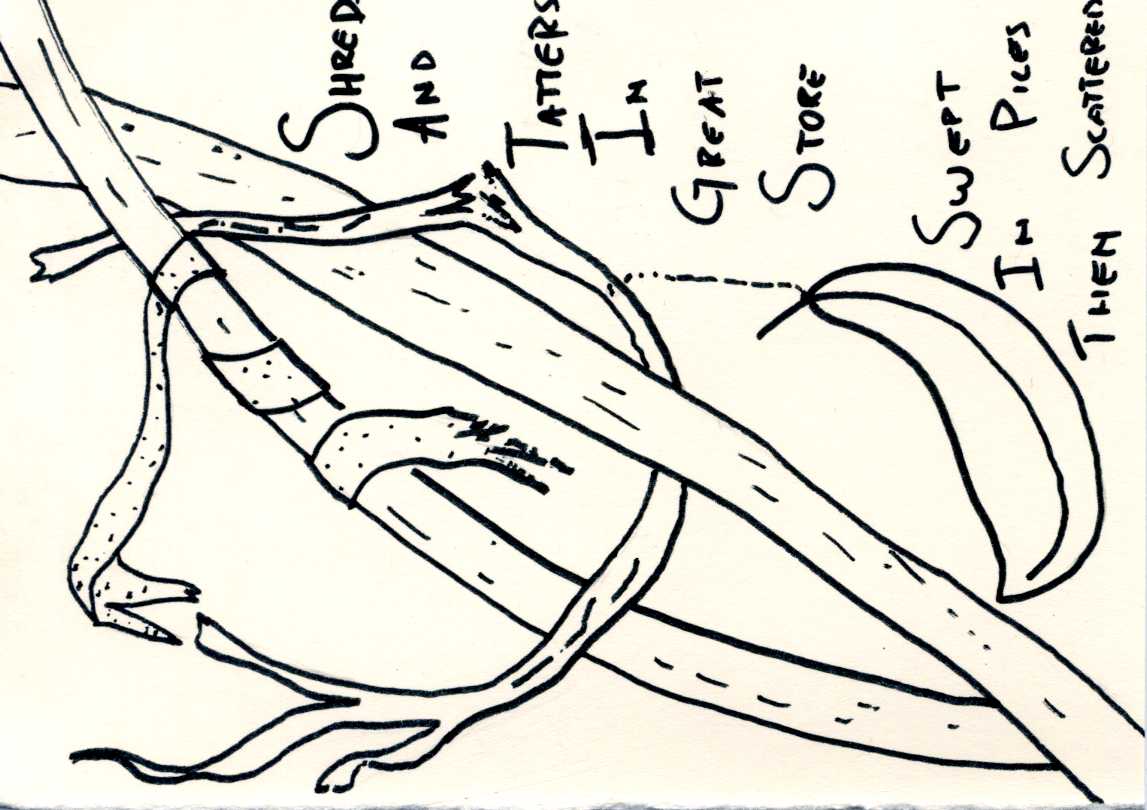 Shred
And
Tatters
In
Great
Store
Swept
In Piles
Then Scattered